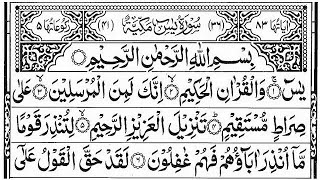 اٰیاتها ٨٣ (٣٦) سُوْرَةُ يٰسٓ مَكِّيَّةٌ (٤١) رُكُوْعَاتُهَا ٥
بِسْمِ اللّٰهِ الرَّحْمٰنِ الرَّحِيْمِ
يٰسٓ ۚ﴿١﴾ وَالْقُرْاٰنِ الْحَكِيْمِ ۙ﴿٢﴾ اِنَّكَ لَمِنَ الْمُرْسَلِيْنَ ۙ﴿٣﴾ عَلٰى
صِرَاطٍ مُّسْتَقِيْمٍ ؕ﴿٤﴾ تَنْزِيْلَ الْعَزِيْزِ الرَّحِيْمِ ۙ﴿٥﴾ لِتُنْذِرَ قَوْمًا
مَّاۤ اُنْذِرَ اٰبَآؤُهُمْ فَهُمْ غٰفِلُوْنَ ﴿٦﴾ لَقَدْ حَقَّ الْقَوْلُ عَلٰۤى